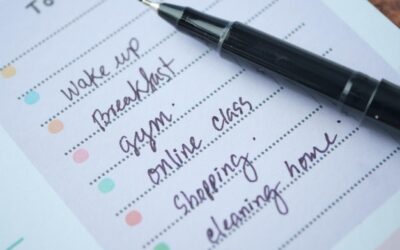 To
wake up
Breakfast
gym.
online class
shopping.
cleaning home.